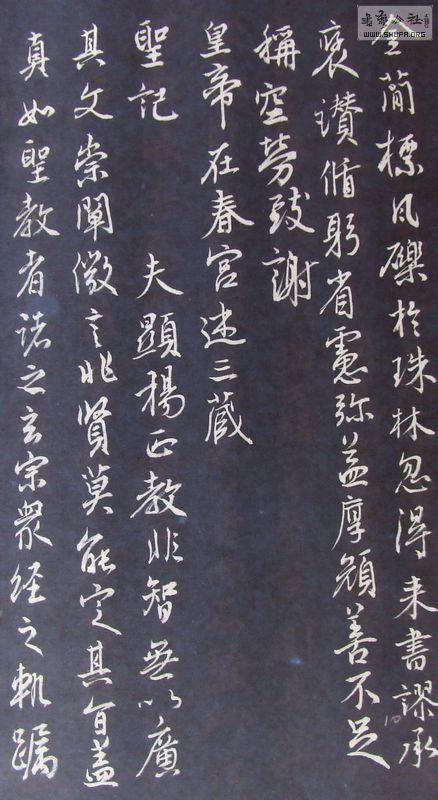 金簡標瓦礫於珠林忽得来書謬承
褒讃循躬省慮弥益厚顔善不足
稱空勞致謝
皇帝在春宮述三藏
聖記　夫顯揚正教非智無以廣
其文崇闡微言非賢莫能定其旨蓋
真如聖教者諸之玄宗衆經之軌躅
書法公社
WWW.SHUFA.ORG